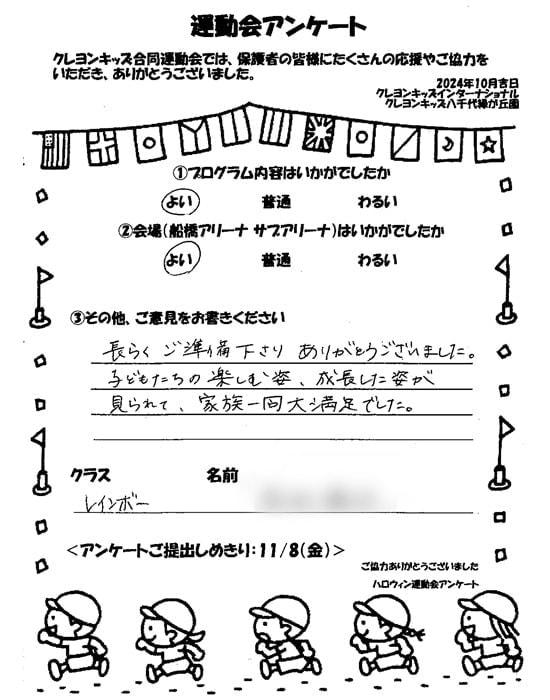 運動会アンケート
クレヨンキッズ合同運動会では、保護者の皆様にたくさんの応援やご協力を
いただき、ありがとうございました。
2024年10月吉日
クレヨンキッズインターナショナル
クレヨンキッズ八千代緑が丘園
①プログラム内容はいかがでしたか
よい 普通 わるい
②会場(船橋アリーナ サブアリーナ)はいかがでしたか
よい 普通 わるい
③その他、ご意見をお書きください
長らく ご準備下さり ありがとうございました。
子どもたちの楽しむ姿、成長した姿が
見られて、家族一同大満足でした。
クラス 名前
レインボー
<アンケートご提出しめきり:11/8(金)>
ご協力ありがとうございました
ハロウィン運動会アンケート